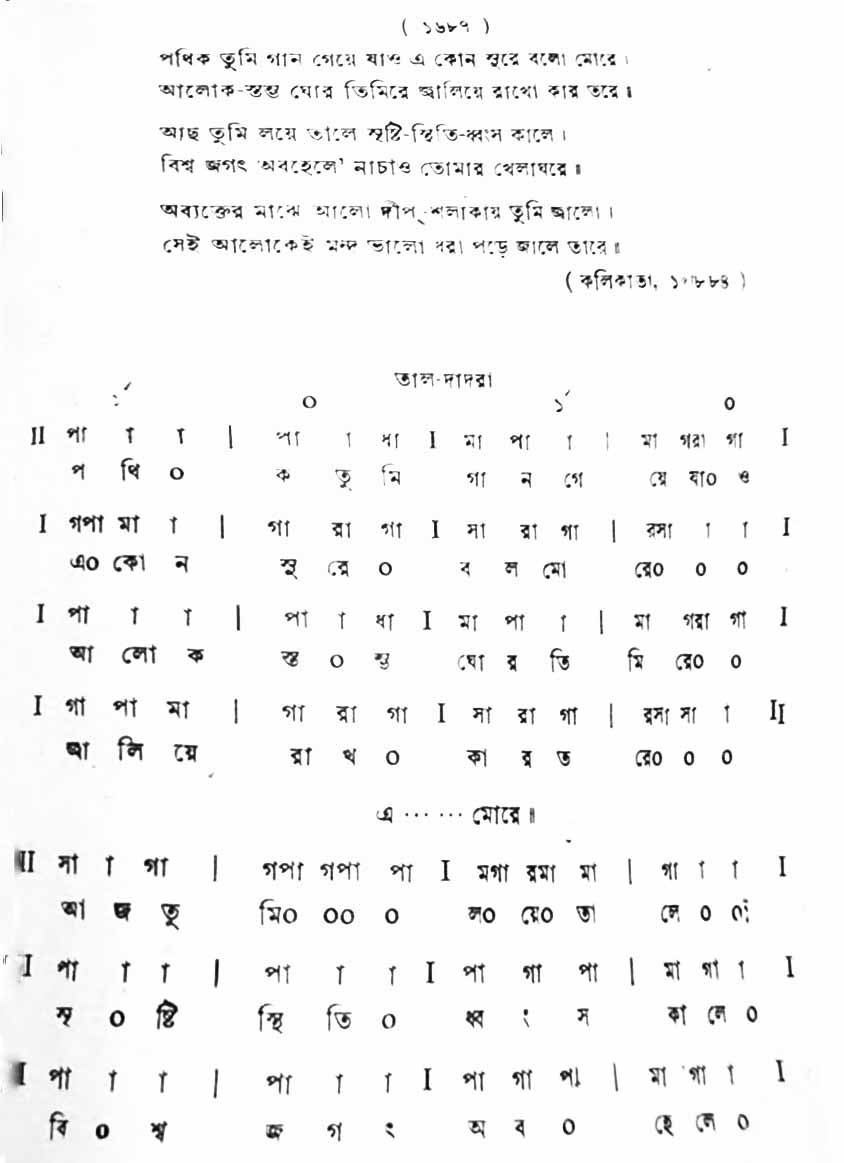 ( ১৬৮৭ )
পথিক তুমি গান গেয়ে যাও এ কোন সুরে বলো মোরে।
আলোক-স্তম্ভ ঘোর তিমিরে জ্বালিয়ে রাখো কার তরে॥
আছ তুমি লয়ে তালে সৃষ্টি-স্থিতি-ধ্বংস কালে।
বিশ্ব জগৎ অবহেলে' নাচাও তোমার খেলাঘরে॥
অব্যক্তের মাঝে আলো দীপ-শলাকায় তুমি জ্বালো।
সেই আলোকেই মন্দ ভালো ধরা পড়ে জালে তারে॥
( কলিকাতা,
তাল-দাদরা
১´ ০ ১´ ০
II পা া া | পা া ধা I মা পা া | মা গরা গা I
প থি ০ ক তু মি গা ন গে য়ে যা০ ও
I গপা মা া | গা রা গা I সা রা গা | রসা া া I
এ০ কো ন সু রে ০ ব ল মো রে০ ০ ০
I পা া া | পা া ধা I মা পা া | মা গরা গা I
আ লো ক স্ত ০ ম্ভ ঘো র তি মি রে০ ০
I গা পা মা | গা রা গা I সা রা গা | রসা সা া II
জ্বা লি য়ে রা খ ০ কা র ত রে০ ০ ০
এ ⋯ ⋯ মোরে॥
II সা া গা | গপা গপা পা I মগা রমা মা | গা া া I
আ ছ তু মি০ ০০ ০ ল০ য়ে০ তা লে ০ ০
I পা া া | পা া া I পা গা পা | মা গা া I
সৃ ০ ষ্টি স্থি তি ০ ধ্ব ং স কা লে ০
I পা া া | পা া া I পা গা পা | মা গা া I
বি ০ শ্ব জ গ ৎ অ ব ০ হে লে ০